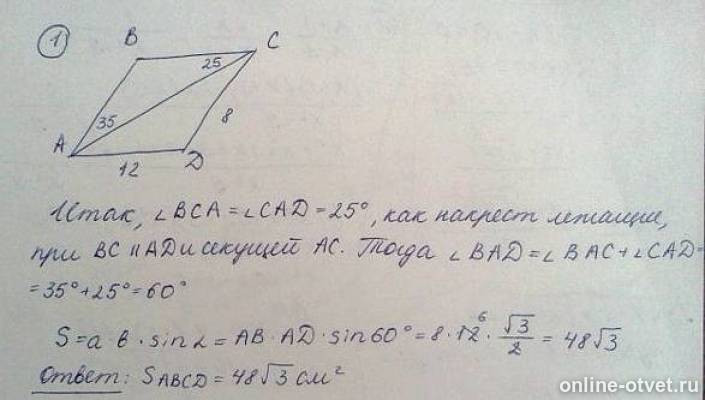 1
B
C
25
35
8
A
12
D
Итак, ∠BCA = ∠CAD = 25°, как накрест лежащие,
при BC || AD и секущей AC. Тогда ∠BAD = ∠BAC + ∠CAD =
= 35° + 25° = 60°
S = a · b · sin α = AB · AD · sin 60° = 8 · 12 6 · √3/2 = 48√3
Ответ: S ABCD = 48√3 см²
online-otvet.ru